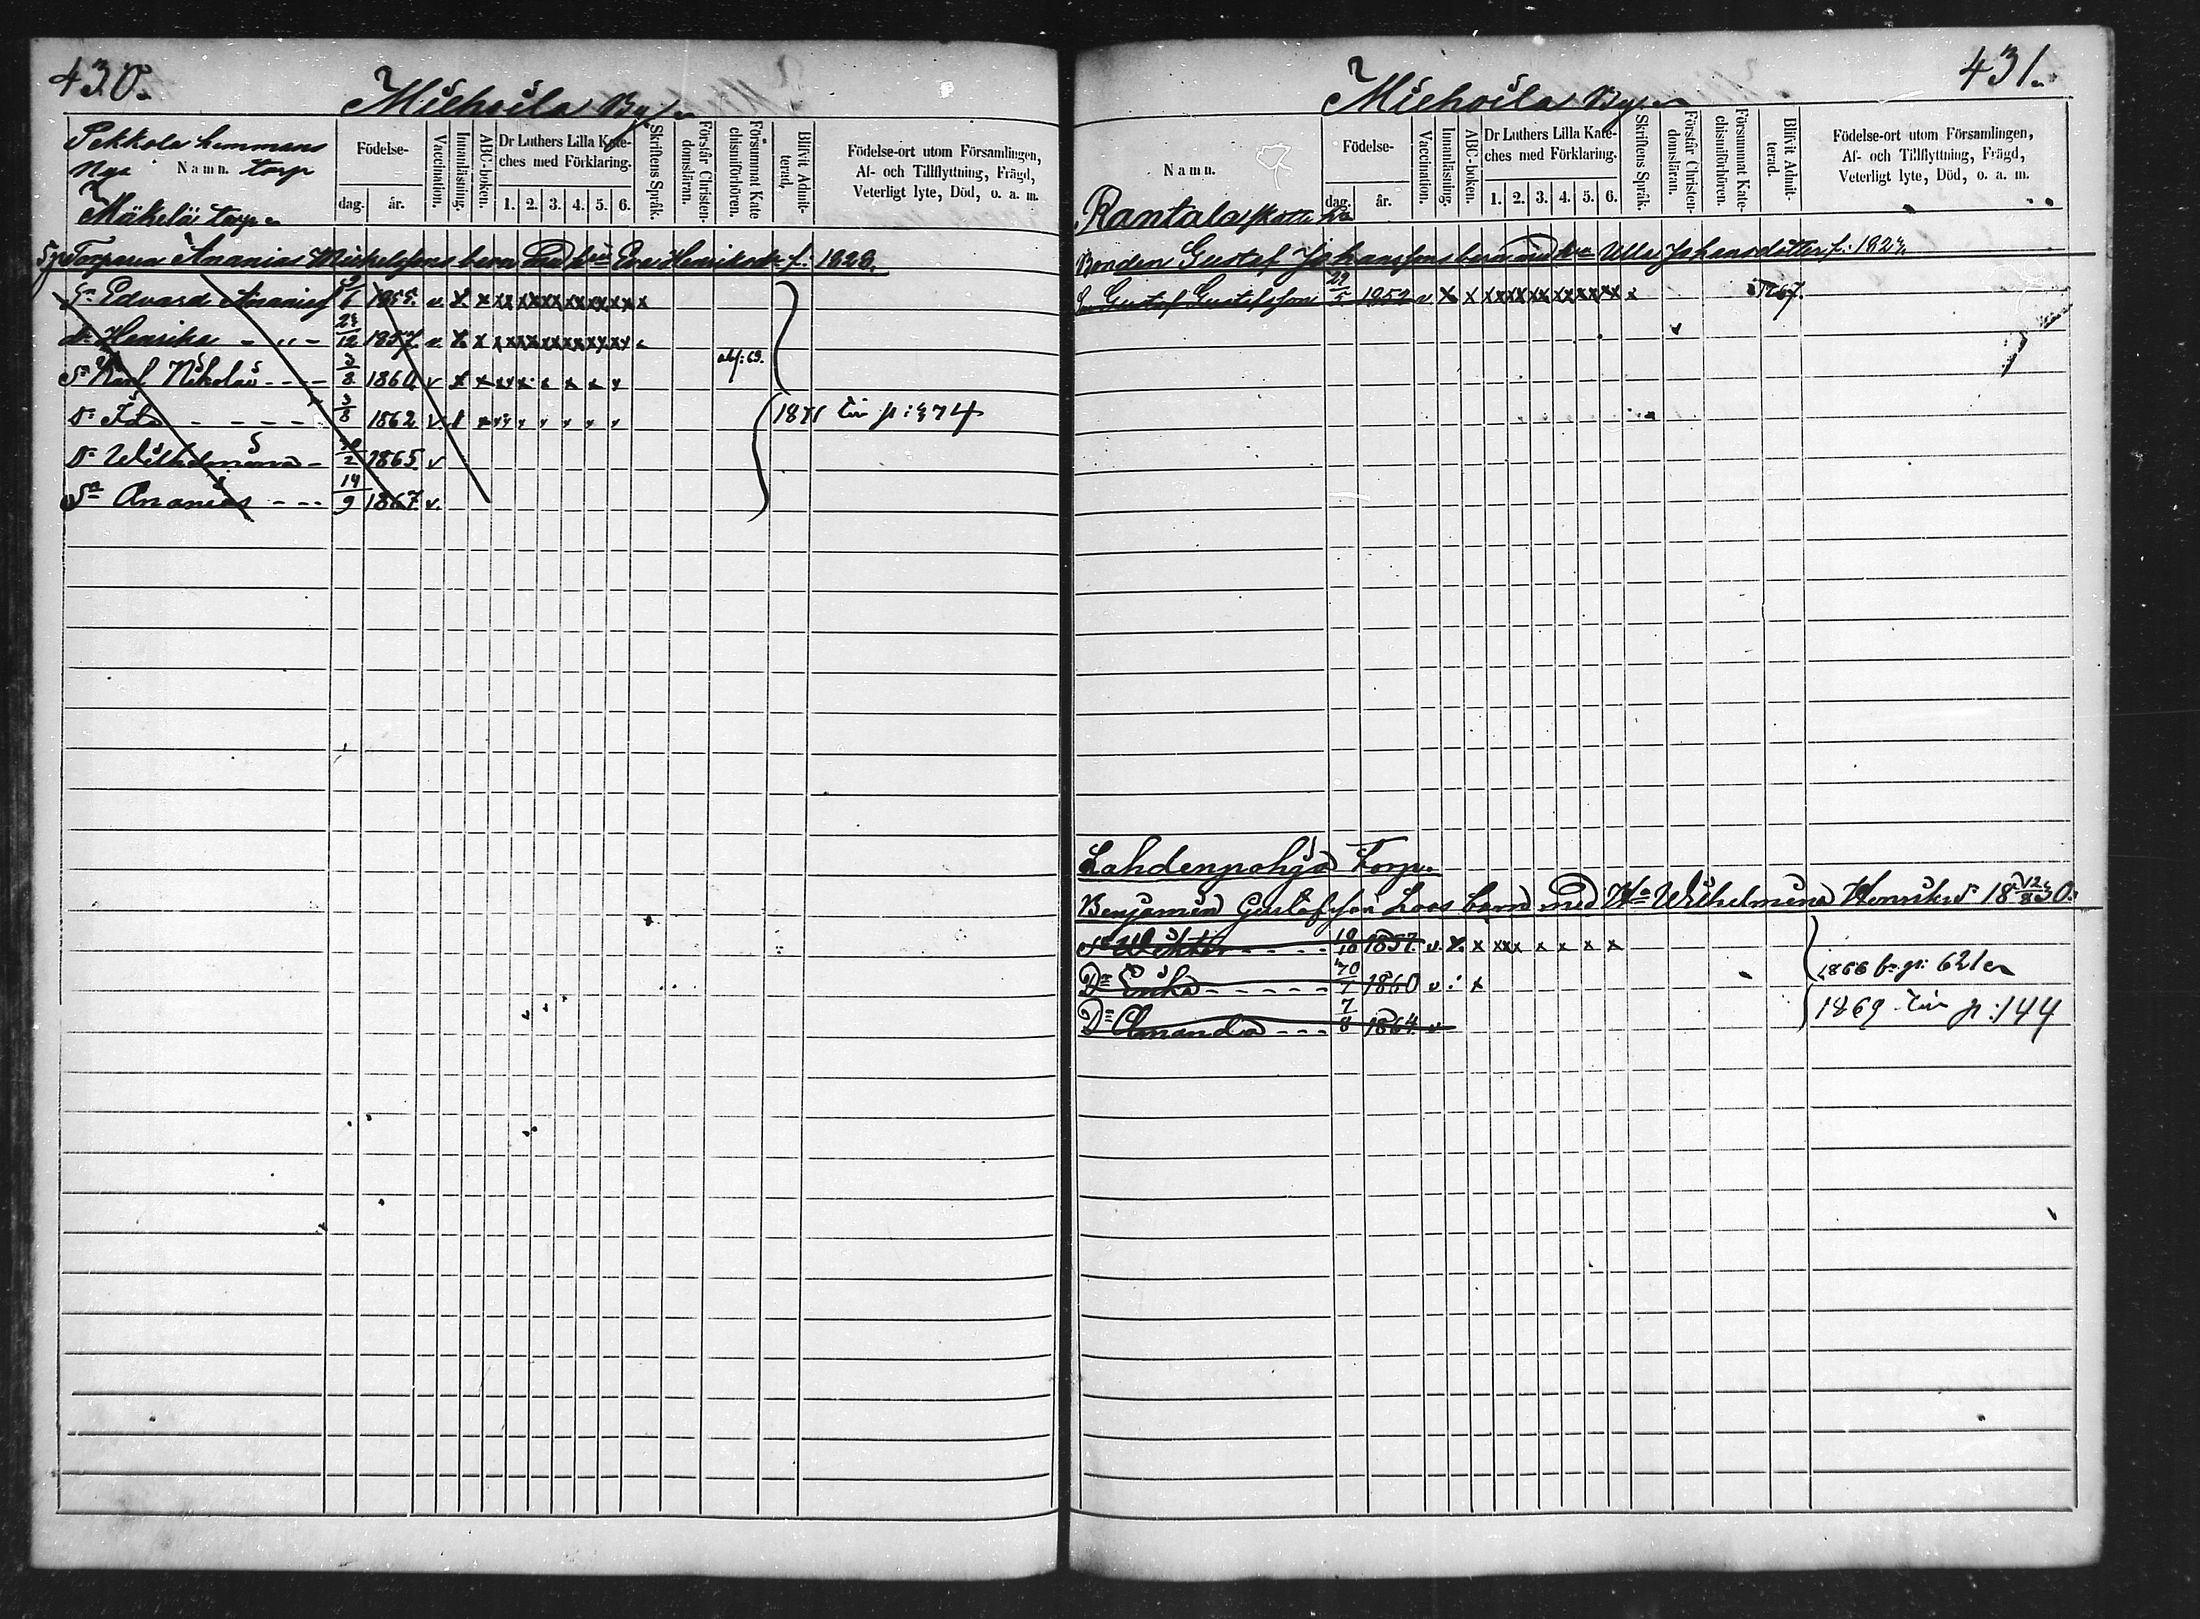 430.
Michoila By
Pekkola hemmans
Nya torp
Namn.
Födelse-
dag. år.
Vaccination.
Innanläsning.
ABC-boken.
Dr Luthers Lilla Kate-
ches med Förklaring.
1. 2. 3. 4. 5. 6.
Skriftens Språk.
Förstår Christen-
domsläran.
Försummat Kate
chismiförhören.
Blifvit Admit-
terad.
Födelse-ort utom Församlingen,
Af- och Tillflyttning, Frägd,
Veterligt lyte, Död, o. a. m.
Mäkelä torp
Torparen Ananias Michelssons barn med hu Eva Henriksdr f. 1828.
Sn Edvard Ananias 6 1855. v. x x x x x x x x x
dr Henrika - " - 12 1857. v. x x x x x x x x
Sn Karl Nikolai - - - 3/8 1860 v x x x x x x x x abs: 69.
Dr Ida - - - - 3/8 1862 v
1871 lin p: 374
Dr Wilhelmina - 2 1865 v
Sn Ananias - - - 14/9 1867 v.
431.
Michoila By
Namn.
Födelse-
dag. år.
Vaccination.
Innanläsning.
ABC-boken.
Dr Luthers Lilla Kate-
ches med Förklaring.
1. 2. 3. 4. 5. 6.
Skriftens Språk.
Förstår Christen-
domsläran.
Försummat Kate-
chismiförhören.
Blifvit Admit-
terad.
Födelse-ort utom Församlingen,
Af- och Tillflyttning, Frägd,
Veterligt lyte, Död, o. a. m.
Rantala
Bonden Gustaf Johanssons barn med hu Ulla Johansdotter f. 182
Gustaf Gustafsson 1852 v x x x x x x x x x 67.
Lahdenpohja Torp.
Benjamin Gustafsson Loos barn med Ha Wilhelmina Henriksdr 1830.
Sn Wiktor - - - 10 1857. v. x x x x x x x x
Dr Erika - - - - - 1860 v x
1866 fr p: 621
Dr Amanda - - - 7/8 1864. v
1869 lin p: 144